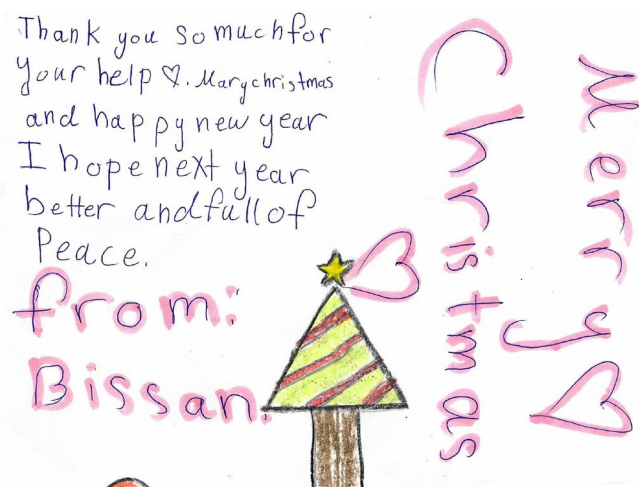 Thank you so much for
your help ♡. Mary christmas
and happy new year
I hope next year
better and full of
Peace.
from:
Bissan.
Merry ♡
Christmas